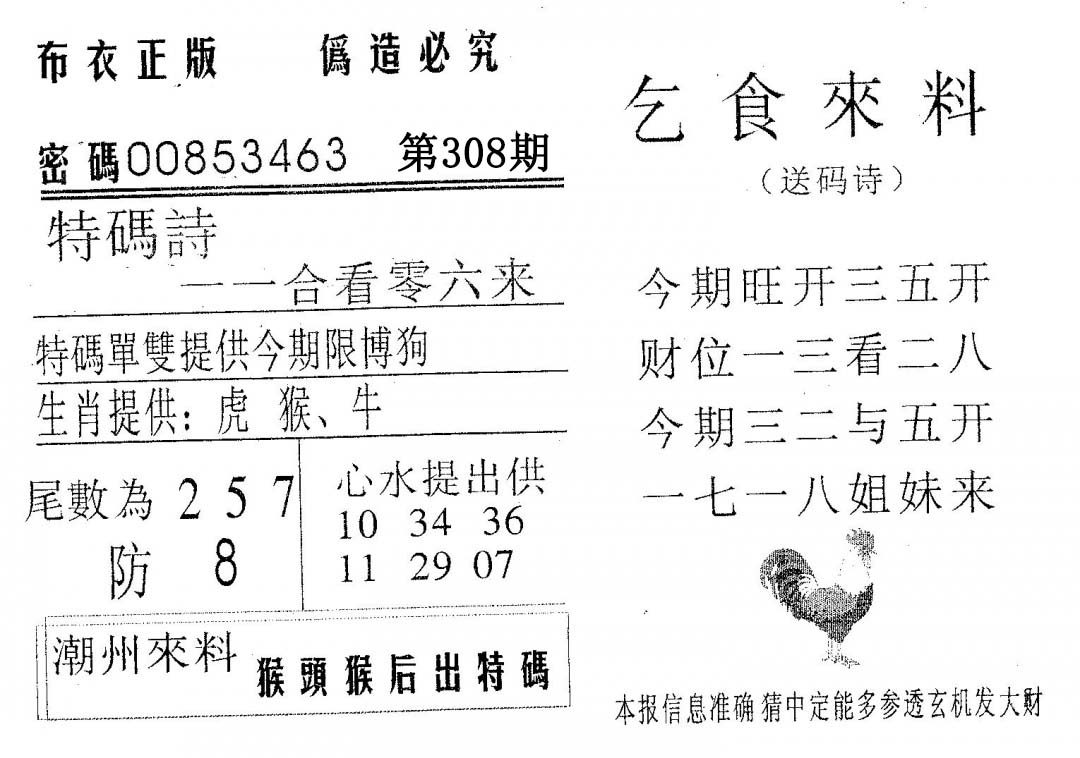 布衣正版 僞造必究
密碼00853463 第308期
特碼詩
一一合看零六来
特碼單雙提供今期限博狗
生肖提供：虎 猴、牛
尾數為 2 5 7
防 8
心水提出供
10 34 36
11 29 07
潮州來料 猴頭猴后出特碼
乞食來料
（送码诗）
今期旺开三五开
财位一三看二八
今期三二与五开
一七一八姐妹来
本报信息准确猜中定能多参透玄机发大财